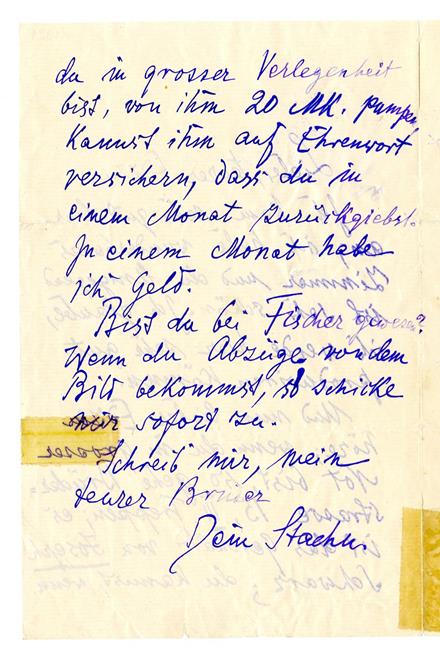 du in grosser Verlegenheit
bist, von ihm 20 Mk. pumpen
Kannst ihm auf Ehrenwort
versichern, dass du in
einem Monat zurückgiebst.
In einem Monat habe
ich Geld.
Bist du bei Fischer gewesen?
Wenn du Abzüge von dem
Bild bekommst, so schicke
mir sofort zu.
Schreib mir, mein
teurer Bruder
Dein Staehn.